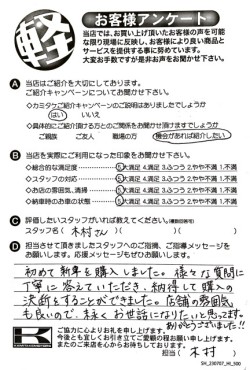 軽
お客様アンケート
当店では、お買い上げ頂いたお客様の声を可能
な限り現場に反映し、お客様により良い商品と
サービスを提供する事に努めています。
大変お手数ですが是非お声をお聞かせ下さい。
A 当店はご紹介を大切にしております。
ご紹介キャンペーンについてお聞かせ下さい。
◇カミタケご紹介キャンペーンのご説明はありましたでしょうか
はい いいえ
◇具体的にご紹介頂ける方とのご関係をお聞かせ頂けますでしょうか
ご親族 ご友人 職場の方 機会があれば紹介したい
B 当店を実際にご利用になった印象をお聞かせ下さい。
◇総合的な満足度 5.大満足 4.満足 3.ふつう 2.やや不満 1.不満
◇スタッフの対応 5.大満足 4.満足 3.ふつう 2.やや不満 1.不満
◇お店の雰囲気、清掃 5.大満足 4.満足 3.ふつう 2.やや不満 1.不満
◇納車時のお車の状態 5.大満足 4.満足 3.ふつう 2.やや不満 1.不満
C 評価したいスタッフがいれば教えてください。(複数回答可)
スタッフ名( 木村さん )
D 担当させて頂きましたスタッフへのご指摘、ご指導メッセージを
お願いします。応援メッセージもぜひお願いします。
初めて新車を購入しました。様々な質問に
丁寧に答えていただき、納得して購入の
決断をすることができました。店舗の雰囲気
も良いので、末永くお世話になりたいと思います。
ありがとうございました!!
K
ご協力に心よりお礼を申し上げます。
今後とも宜しくお引き立てご愛顧の程お願い申し上げます。
またのご来店を心からお待ちしております。
担当( 木村 )
SH_230707_HI_500